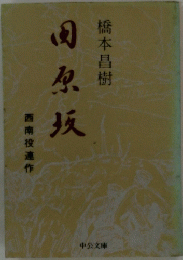 橋本昌樹
田原坂
西南役連作
中公文庫